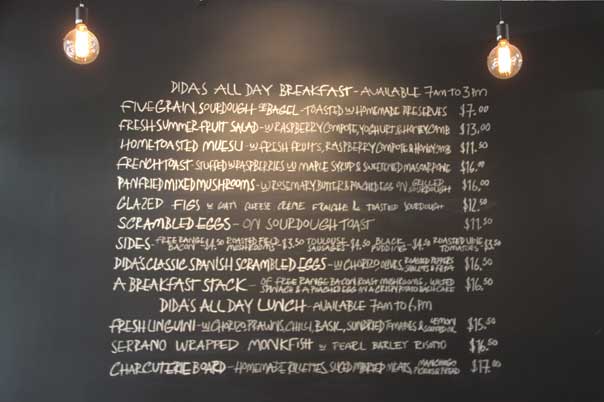 DIDA'S ALL DAY BREAKFAST - AVAILABLE 7AM TO 3PM
FIVE GRAIN, SOURDOUGH OR BAGEL - TOASTED W HOMEMADE PRESERVES $7.00
FRESH SUMMER FRUIT SALAD - W RASPBERRY COMPOTE, YOGHURT & HONEYCOMB $13.00
HOME TOASTED MUESLI - W FRESH FRUITS, RASPBERRY COMPOTE & HONEYCOMB $11.50
FRENCH TOAST - STUFFED W RASPBERRIES W MAPLE SYRUP & SWEETENED MASCARPONE $16.00
PAN FRIED MIXED MUSHROOMS - W ROSEMARY BUTTER & POACHED EGG ON GRILLED SOURDOUGH $16.00
GLAZED FIGS W GOATS CHEESE CRÈME FRAICHE & TOASTED SOURDOUGH $12.50
SCRAMBLED EGGS - ON SOURDOUGH TOAST $11.50
SIDES - FREE RANGE BACON - $4.50 ROASTED FIELD MUSHROOMS - $3.50 TOULOUSE SAUSAGES - $4.50 BLACK PUDDING - $4.50 ROASTED VINE TOMATOES $3.50
DIDA'S CLASSIC SPANISH SCRAMBLED EGGS - W CHORIZO, OLIVES, ROASTED PEPPERS, SHALLOTS & FETA $16.50
A BREAKFAST STACK - OF FREE RANGE BACON, ROAST MUSHROOMS, WILTED SPINACH & A POACHED EGG ON A CRISP POTATO CAKE $16.50
DIDA'S ALL DAY LUNCH - AVAILABLE 7AM TO 6PM
FRESH LINGUINI - W CHORIZO, PRAWNS, CHILLI, BASIL, SUNDRIED TOMATOES & LEMON $15.50
SERRANO WRAPPED MONKFISH W PEARL BARLEY RISOTTO $16.50
CHARCUTERIE BOARD - HOMEMADE RILLETTES, SLICED MEATS, MANCHEGO $17.00